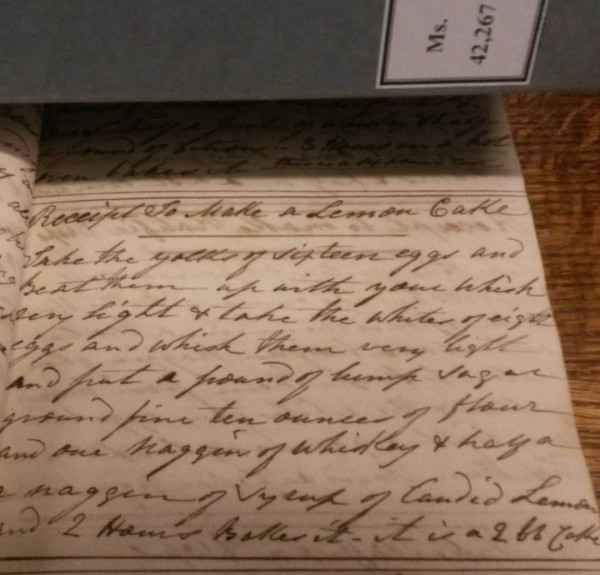 Ms.
42,267
pound of 3 Hours in a hot
oven bakes it
Receipt To Make a Lemon Cake
Take the yolks of sixteen eggs and
beat them up with your Whisk
very light & take the whites of eight
eggs and whisk them very light
and put a pound of lump sugar
ground fine ten ounces of flour
and one Naggin of Whiskey & half a
a naggin of Syrup of Candid Lemon
and 2 Hours Bakes it - it is a 2 lb Cake